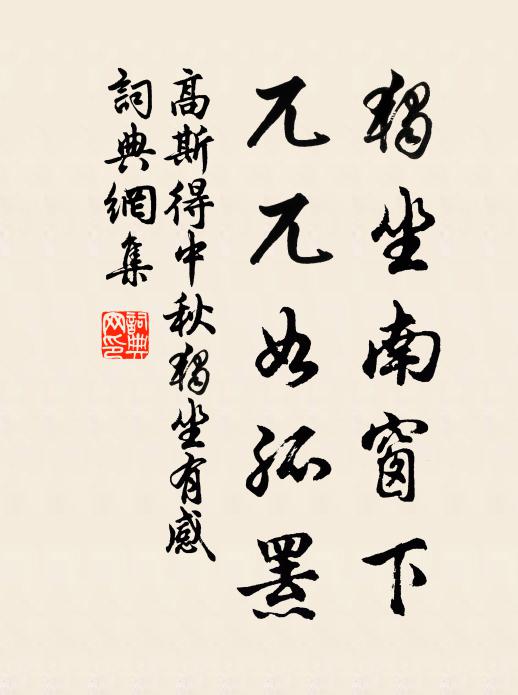 獨坐南窗下
兀兀如孤羆
高斯得中秋獨坐有感
詞典網集
詞典
网印